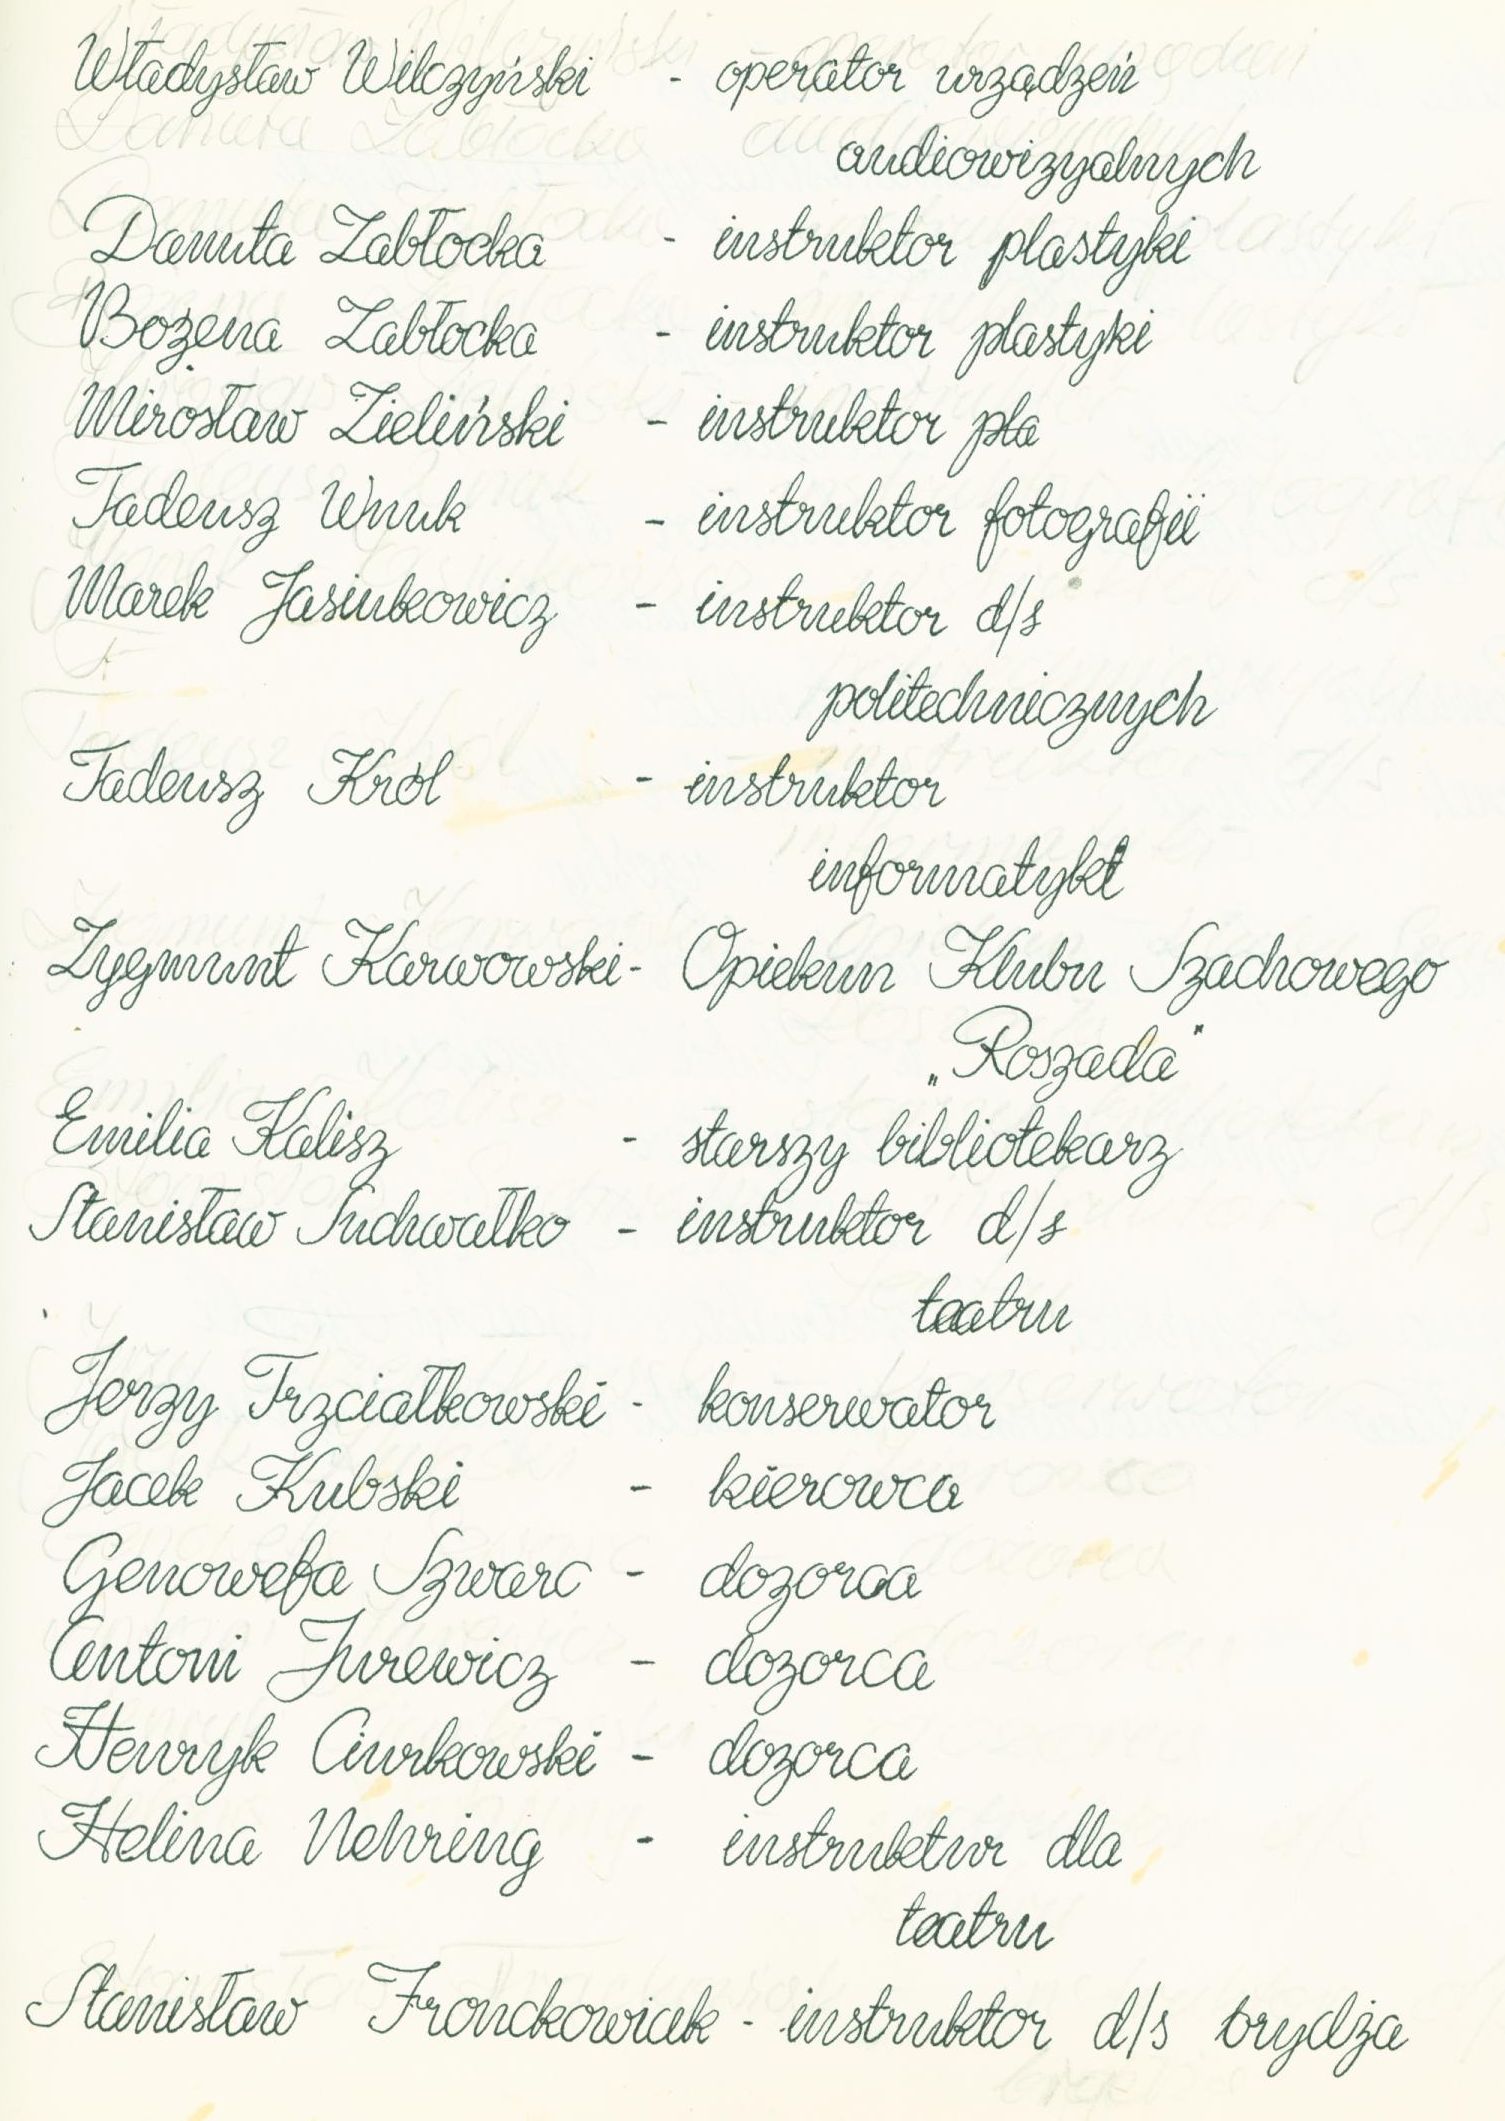 Władysław Wilczyński - operator urządzeń
audiowizyalnych
Danuta Zabłocka - instruktor plastyki
Bożena Zabłocka - instruktor plastyki
Mirosław Zieliński - instruktor pla
Tadeusz Wnuk - instruktor fotografii
Marek Jasiukowicz - instruktor d/s
politechnicznych
Tadeusz Król - instruktor
informatyki
Zygmunt Karwowski - Opiekun Klubu Szachowego
„Roszada"
Emilia Kalisz - starszy bibliotekarz
Stanisław Suchwałko - instruktor d/s
teatru
Jerzy Trzciałkowski - konserwator
Jacek Kubski - kierowca
Genowefa Szwarc - dozorca
Antoni Jurewicz - dozorca
Henryk Ciurkowski - dozorca
Helina Nehring - instruktur dla
teatru
Stanisław Fronckowiak - instruktor d/s brydża